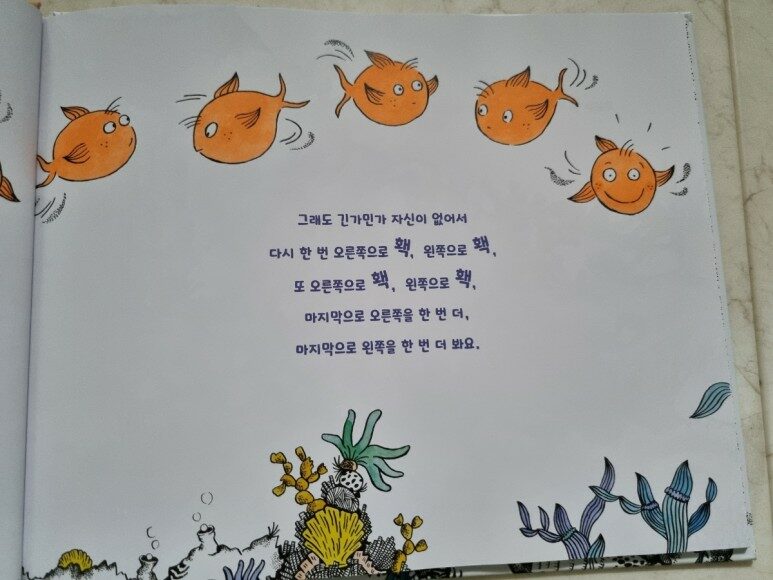 그래도 긴가민가 자신이 없어서
다시 한 번 오른쪽으로 홱, 왼쪽으로 홱,
또 오른쪽으로 홱, 왼쪽으로 홱,
마지막으로 오른쪽을 한 번 더,
마지막으로 왼쪽을 한 번 더 봐요.